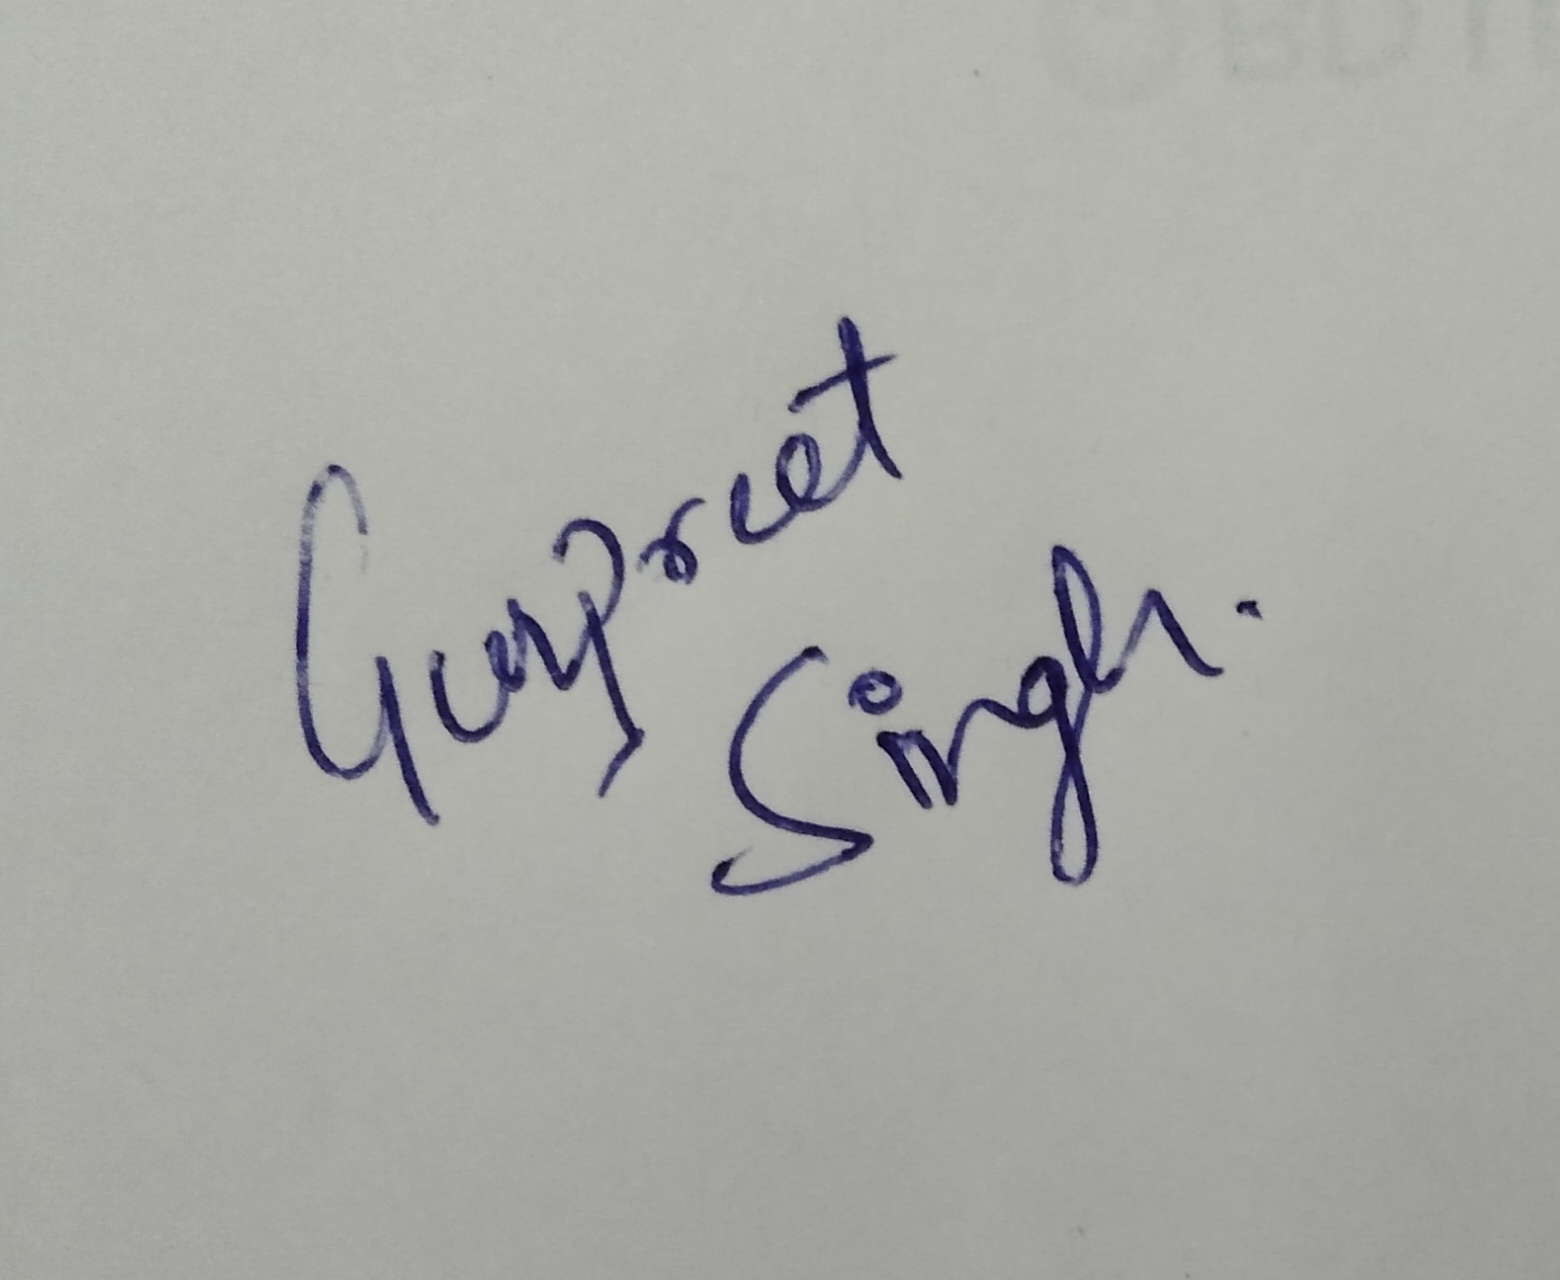 Gurpreet
Singh.